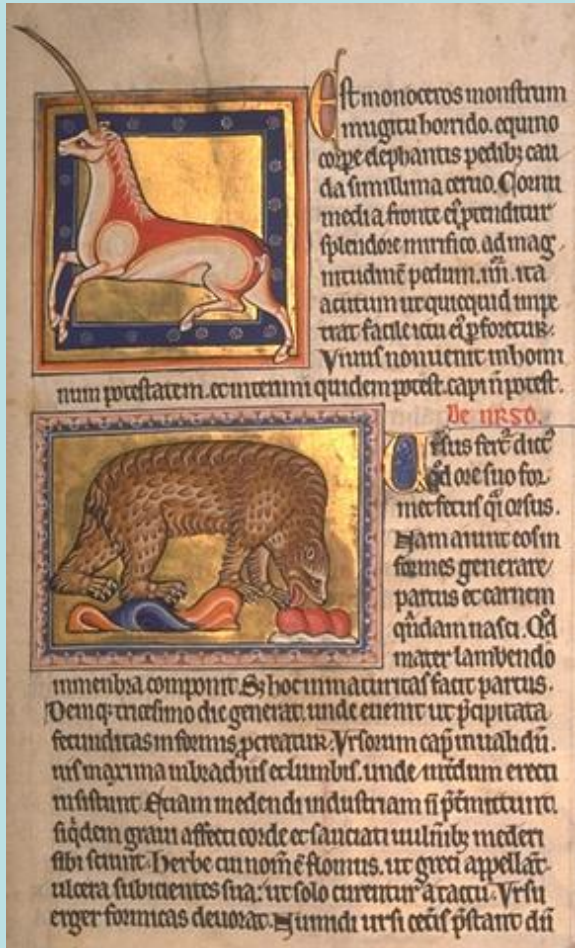 Est monoceros monstrum
mugitu horrido. equino
corpe elephantis pedibȝ cau
da simillima ceruo. Cornu
media fronte eiꝰ ꝓtenditur
splendore mirifico. ad mag
nitudinē pedum .iiii. ita
acutum ut quicquid impe
trat facile ictu eiꝰ ꝑforetur.
Viuus non uenit in homi
num potestatem. et interimi quidem potest. capi ñ potest.
De urso.
Ursus fert᷑ dict᷑
qđ ore suo for
met fetus q̄i orsus.
Nam aiunt eos in
formes generare
partus et carnem
q̄ndam nasci. Qđ
mater lambendo
in menbra componit. Sȝ hoc inmaturitas facit partus.
Deniqȝ tricesimo die generat. unde euenit ut p̄cipitata
fecunditas informis ꝓcreatur. Vrsorum capđ inualidū.
uis maxima in brachiis et lumbis. unde int᷑dum erecti
insistunt. Etiam medendi industriam ñ p̄t᷑mittunt.
siq̇dem graui affecti corde et sauciati uuln̄ibȝ mederi
sibi sciunt. herbe cui nom̄ ē flomus. ut greci appellāt
ulcera subicientes sua: ut solo curentur a tactu. Vrsu
e ger formicas deuorat. Numidi ursi cet᷑is p̄stant dū